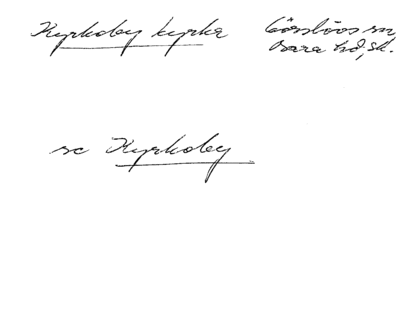 Kyrkoby kyrka Görslövs sn,
Bara hd, Sk.
se Kyrkoby